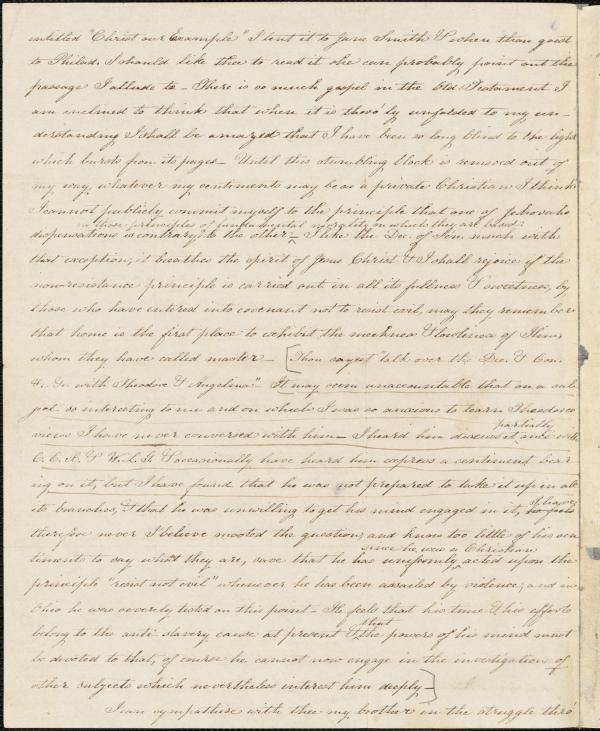 entitled "Christ our Example" I lent it to Jane Smith & when thou goest
to Philad. I should like thee to read it she can probably point out the
passage I allude to – There is so much gospel in the Old Testament I
am inclined to think that when it is thoro'ly unfolded to my un-
derstanding I shall be amazed that I have been so long blind to the light
which bursts from its pages – Until this stumbling block is removed out of
my way, whatever my sentiments may be as a private Christian I think
I cannot publicly commit myself to the principle that one of Jehovahs
in those principles of fundamental morality on which they are based.
dispensations is contrary to the other – I like the Dec. of Sen. much with
that exception, it breathes the spirit of Jesus Christ & I shall rejoice if the
non-resistance principle is carried out in all its fullness & sweetness, by
those who have entered into covenant not to resist evil, may they remember
that home is the first place to exhibit the meekness & lowliness of Him
whom they have called master – [Thou sayest "talk over the Dec. & Con.
&c. &c. with Theodore & Angelina." It may seem unaccountable that on a sub-
ject so interesting to me and on which I was so anxious to learn Theodore's
partially
views I have never conversed with him – I heard him discuss it once with
C. C. B. & W. L. G. & occasionally have heard him express a sentiment bear-
ing on it, but I have found that he was not prepared to take it up in all
its branches, & that he was unwilling to get his mind engaged in it,
therefore never I believe mooted the question, and know too little of his sen-
since he was a Christian
timents to say what they are, save that he has uniformly acted upon the
principle "resist not evil" whenever he has been assailed by violence, and in
Ohio he was severely tested on this point – He feels that his time & his efforts
belong to the anti-slavery cause at present & the powers of his mind must
be devoted to that, of course he cannot now engage in the investigation of
other subjects which nevertheless interest him deeply –]
I can sympathise with thee my brother in the struggle thro'